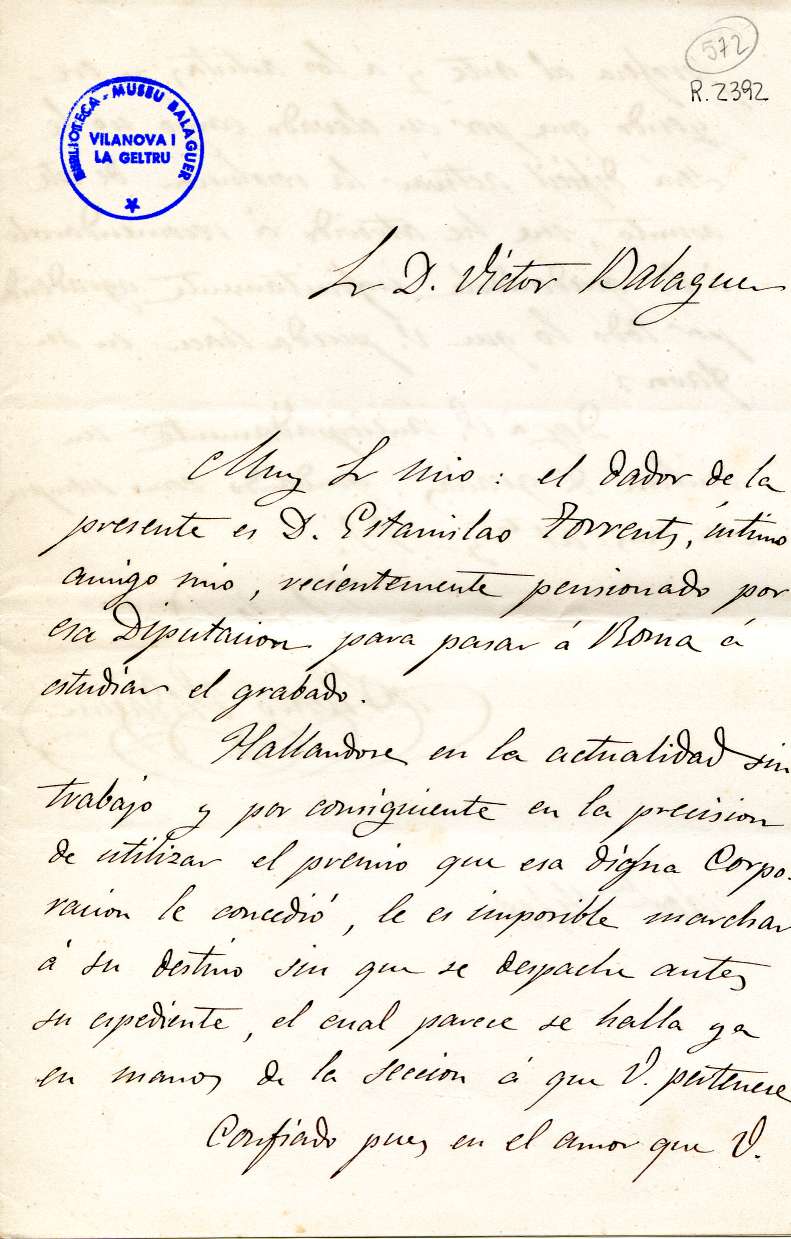 572
R. 2392
BIBLIOTECA - MUSEU BALAGUER
VILANOVA I
LA GELTRU
Sr D. Victor Balaguer
Muy Sr mio: el dador de la
presente es D. Estanislao Torrents, íntimo
amigo mio, recientemente pensionado por
esa Diputacion para pasar á Roma á
estudiar el grabado.
Hallandose en la actualidad sin
trabajo y por consiguiente en la precision
de utilizar el premio que esa digna Corpo-
racion le concedió, le es imposible marchar
á su destino sin que se despache antes
su espediente, el cual parece se halla ya
en manos de la seccion á que V. pertenece
Confiado pues en el amor que V.